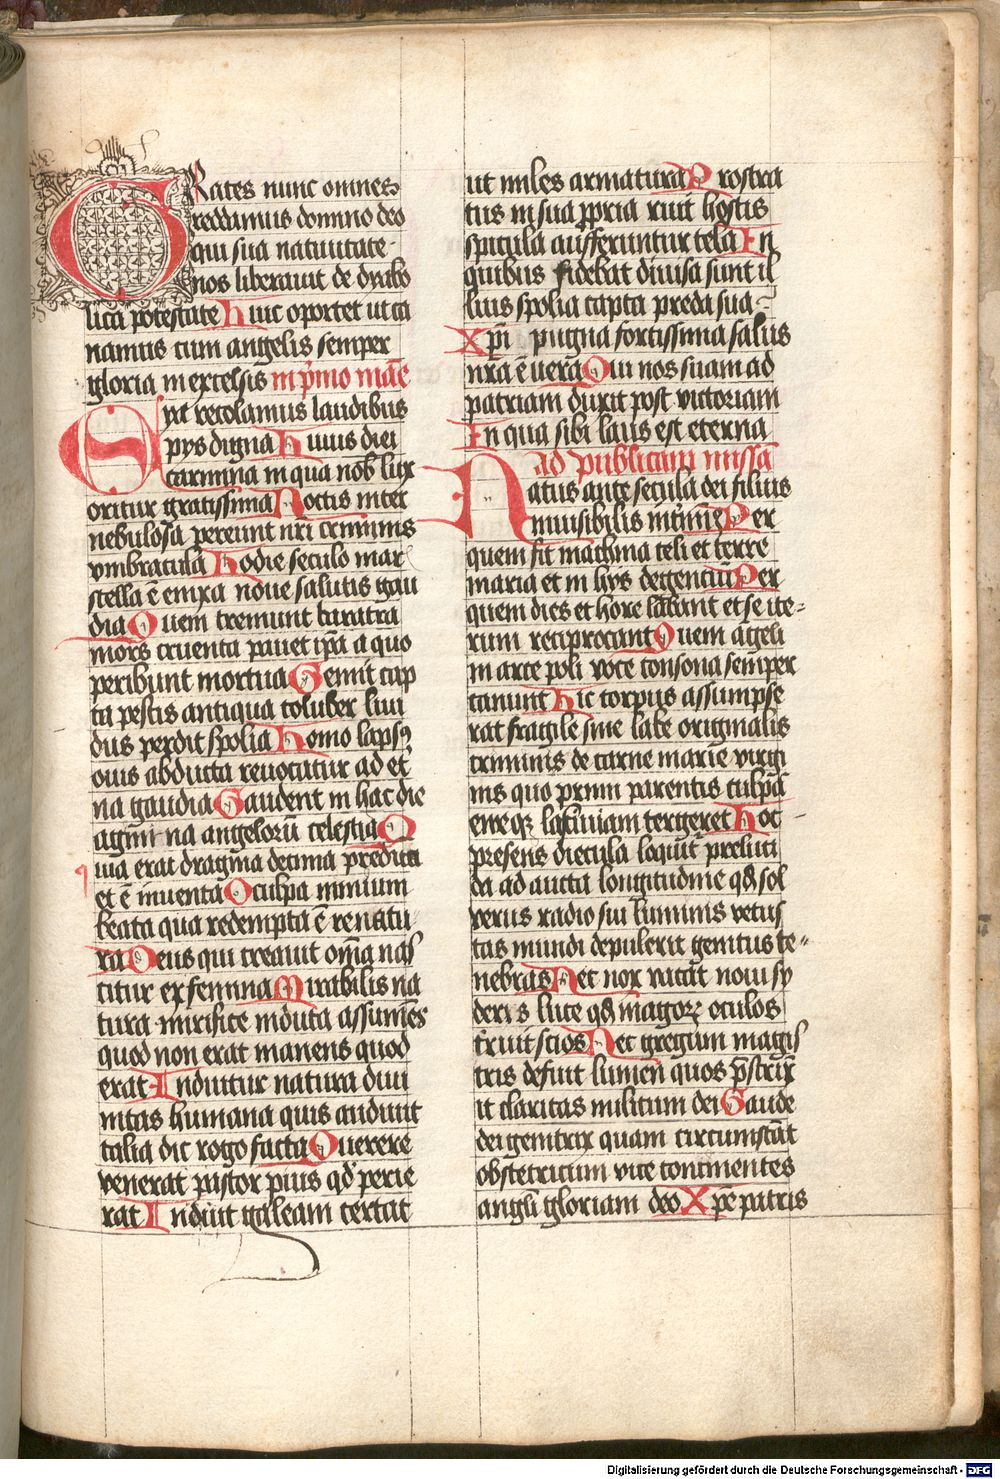 GRates nunc omnes
reddamus domino deo
qui sua natiuitate
nos liberauit de dyabo
lica potestate Huic oportet ut ca
namus cum angelis semper
gloria in excelsis in pͥmo mā̄e
Syt recolamus laudibus
pys digna Huius diei
carmina in qua nob lux
oritur gratissima Noctis inter
nebulosa pereunt nr̄i criminis
vmbracula Hodie seculo mar
stella ē enixa noue salutis gau
dia Quem tremunt baratra
mors cruenta pauet ip̄a a quo
peribunt mortua Gemit cap
ta pestis antiqua coluber liui
dus perdit spolia Homo lapsꝰ
ouis abducta reuocatur ad et
na gaudia Gaudent in hac die
agmina angelorū celestia Q
uia erat dragma decima perdita
et ē inuenta O culpa nimium
beata qua redempta ē renatu
ra Deus qui creauit om̄ia nas
citur ex femina Mirabilis na
tura mirifice induta assumēs
quod non erat manens quod
erat Induitur natura diui
nitas humana quis audiuit
talia dic rogo facta Querere
venerat pastor pius qd̓ perie
rat Induit galeam certat
ut miles armatura Prostra
tus in sua ꝓpria ruit hostis
spicula aufferuntur tela In
quibus fidebat diuisa sunt il
lius spolia capta preda sua
Xp̄i pugna fortissima salus
nr̄a ē uera Qui nos suam ad
patriam duxit post victoriam
In qua sibi laus est eterna
ad publicam missā
Natus ante secula dei filius
inuisibilis intm̄ie Per
quem fit machina celi et terre
maria et in hys degentiū Per
quem dies et hore labant et se ite
rum reciprocant Quem āgeli
in arce poli voce consona semper
canunt Hic corpus assumpse
rat fragile sine labe originalis
criminis de carne marie virgi
nis quo primi parentis culpā
eueqꝫ lasciuiam tergeret Hoc
presens diecula loquit̄ preluci
da ad aucta longitudine qd̓ sol
verus radio sui luminis vetus
tas mundi depulerit genitus te
nebras Nec nox vacat noui sy
deris luce qd̓ magoꝝ oculos
terruit scios Nec gregum magis
tris defuit lumen quos p̄strīx
it claritas militum dei Gaude
dei genitrix quam circumstāt
obstetricum vice concinentes
angl̄i gloriam deo Xp̄e patris
Digitalisierung gefördert durch die Deutsche Forschungsgemeinschaft - DFG